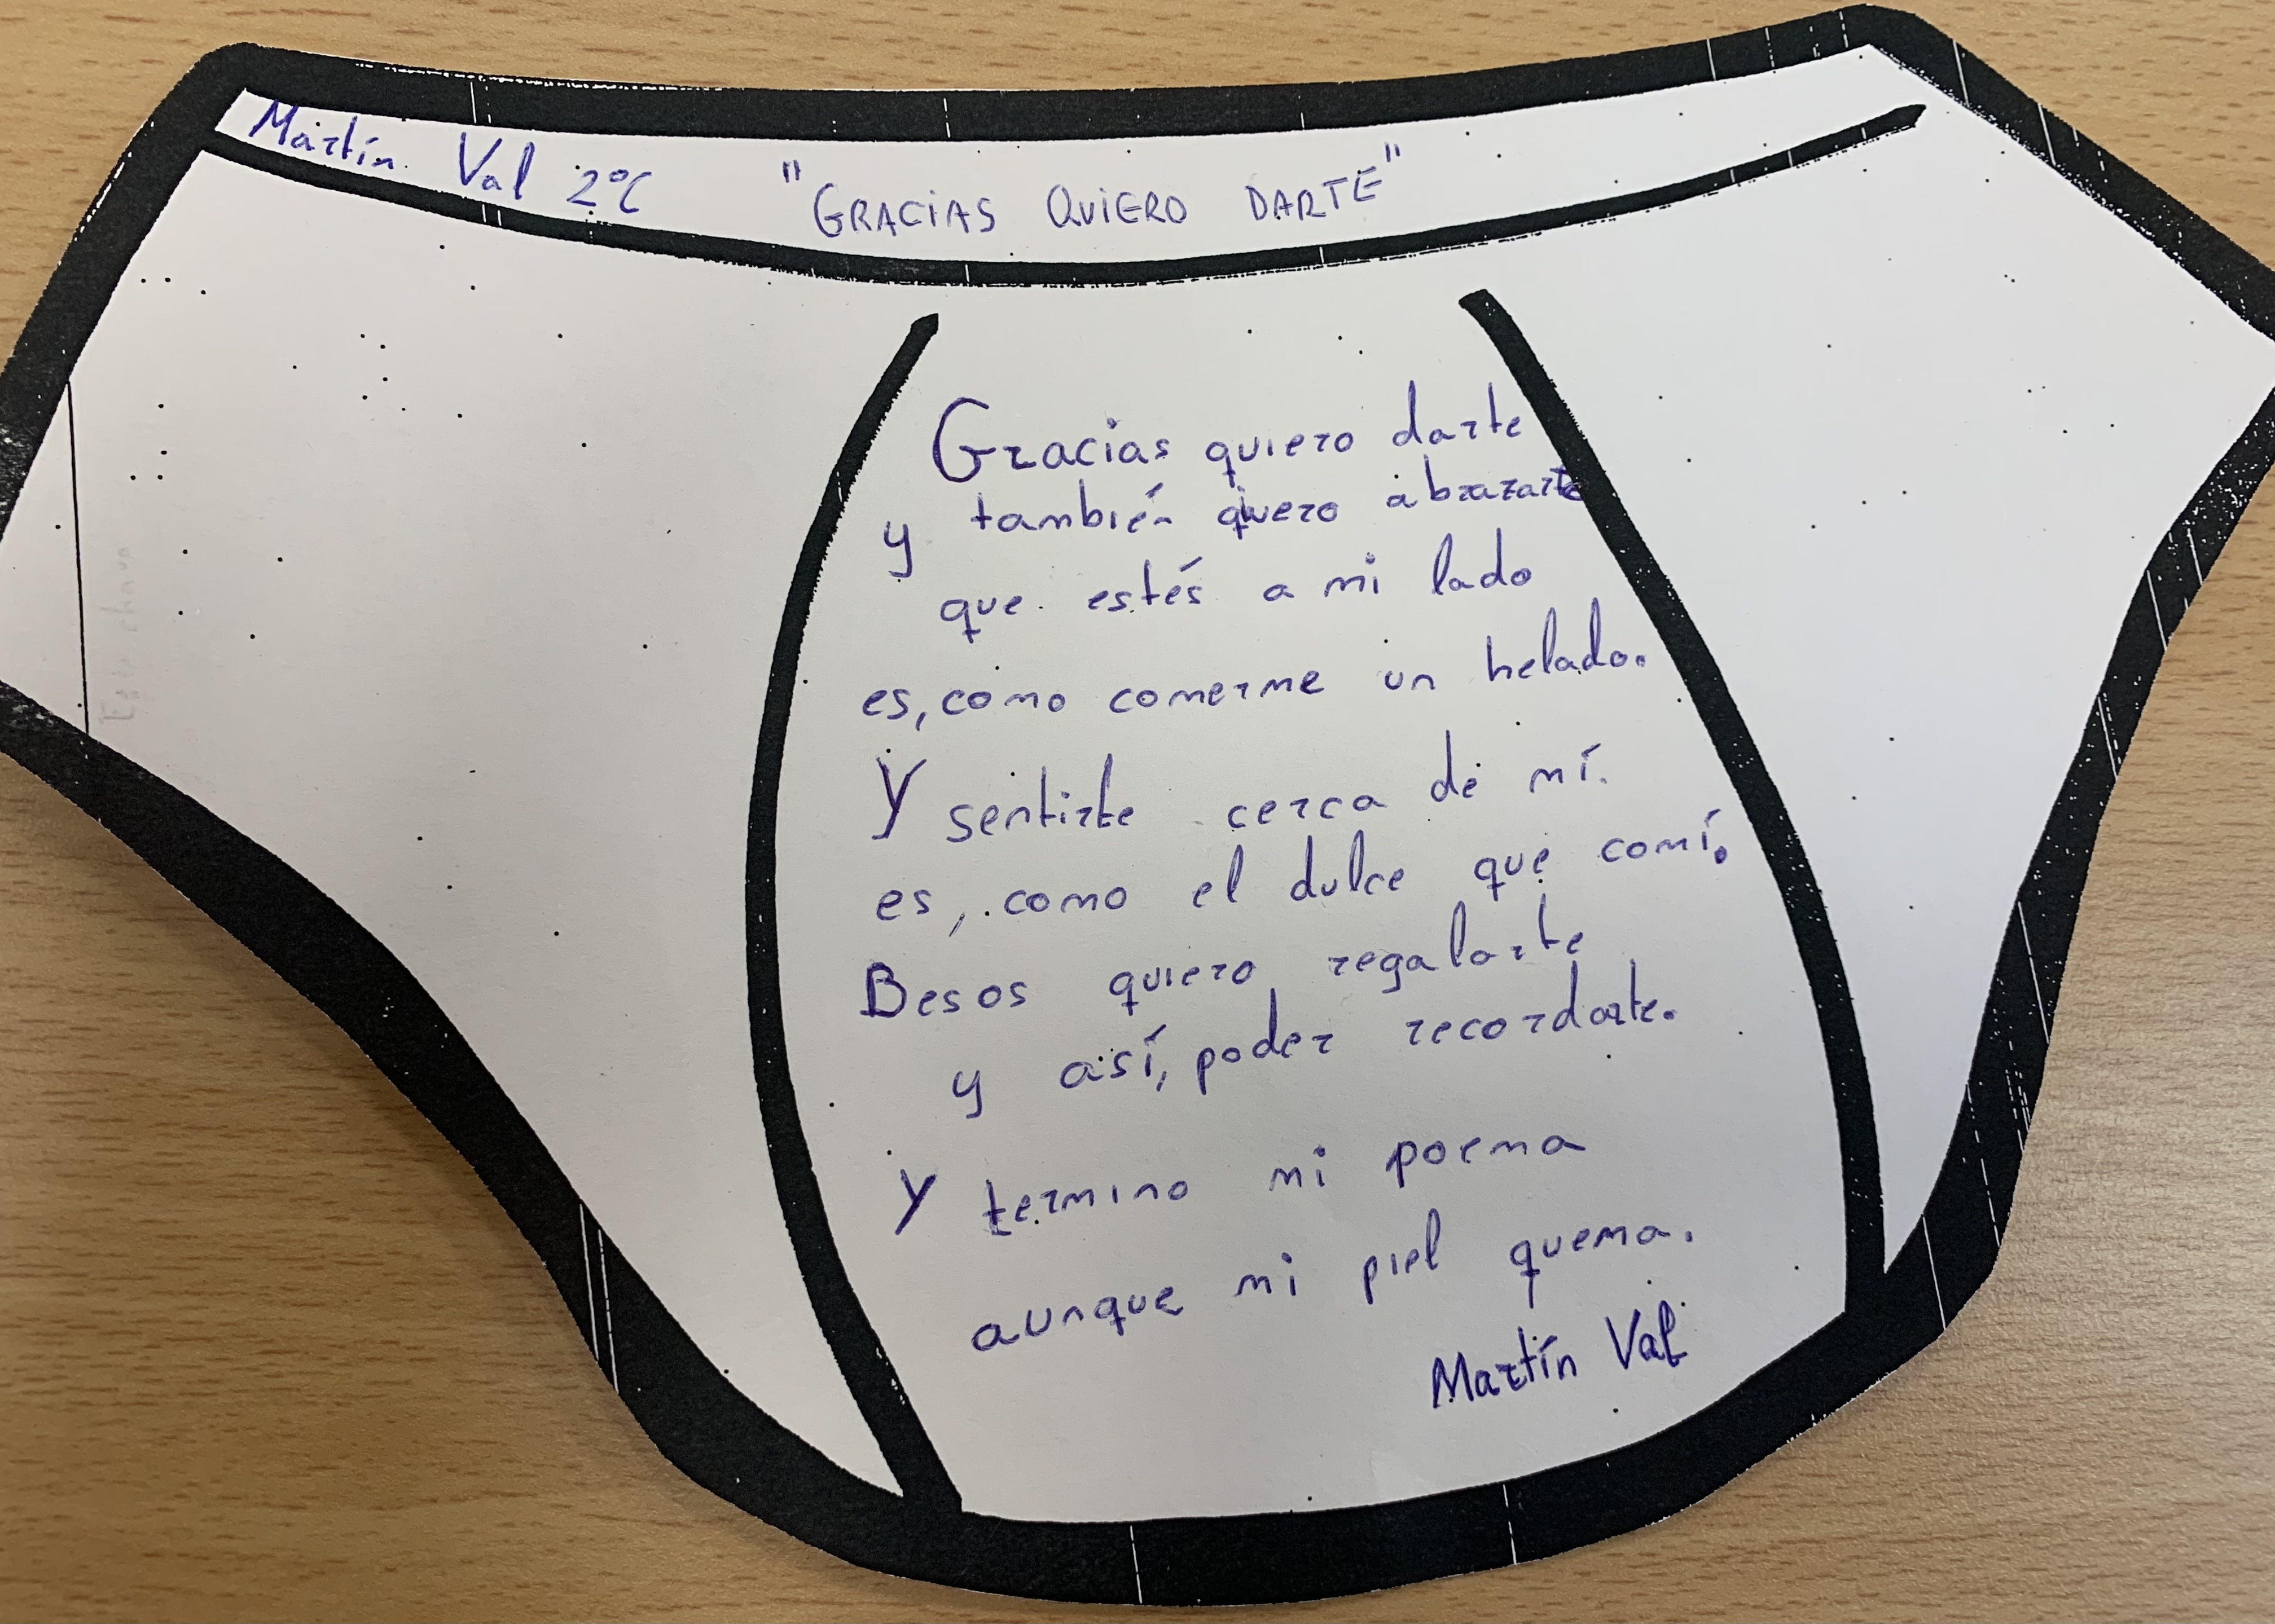 Martín Val 2ºC "GRACIAS QUIERO DARTE"
Gracias quiero darte
y también quiero abrazarte
que estés a mi lado
es, como comerme un helado.
Y sentirte cerca de mí.
es, como el dulce que comí.
Besos quiero regalarte
y así, poder recordarte.
Y termino mi poema
aunque mi piel quema.
Martín Val